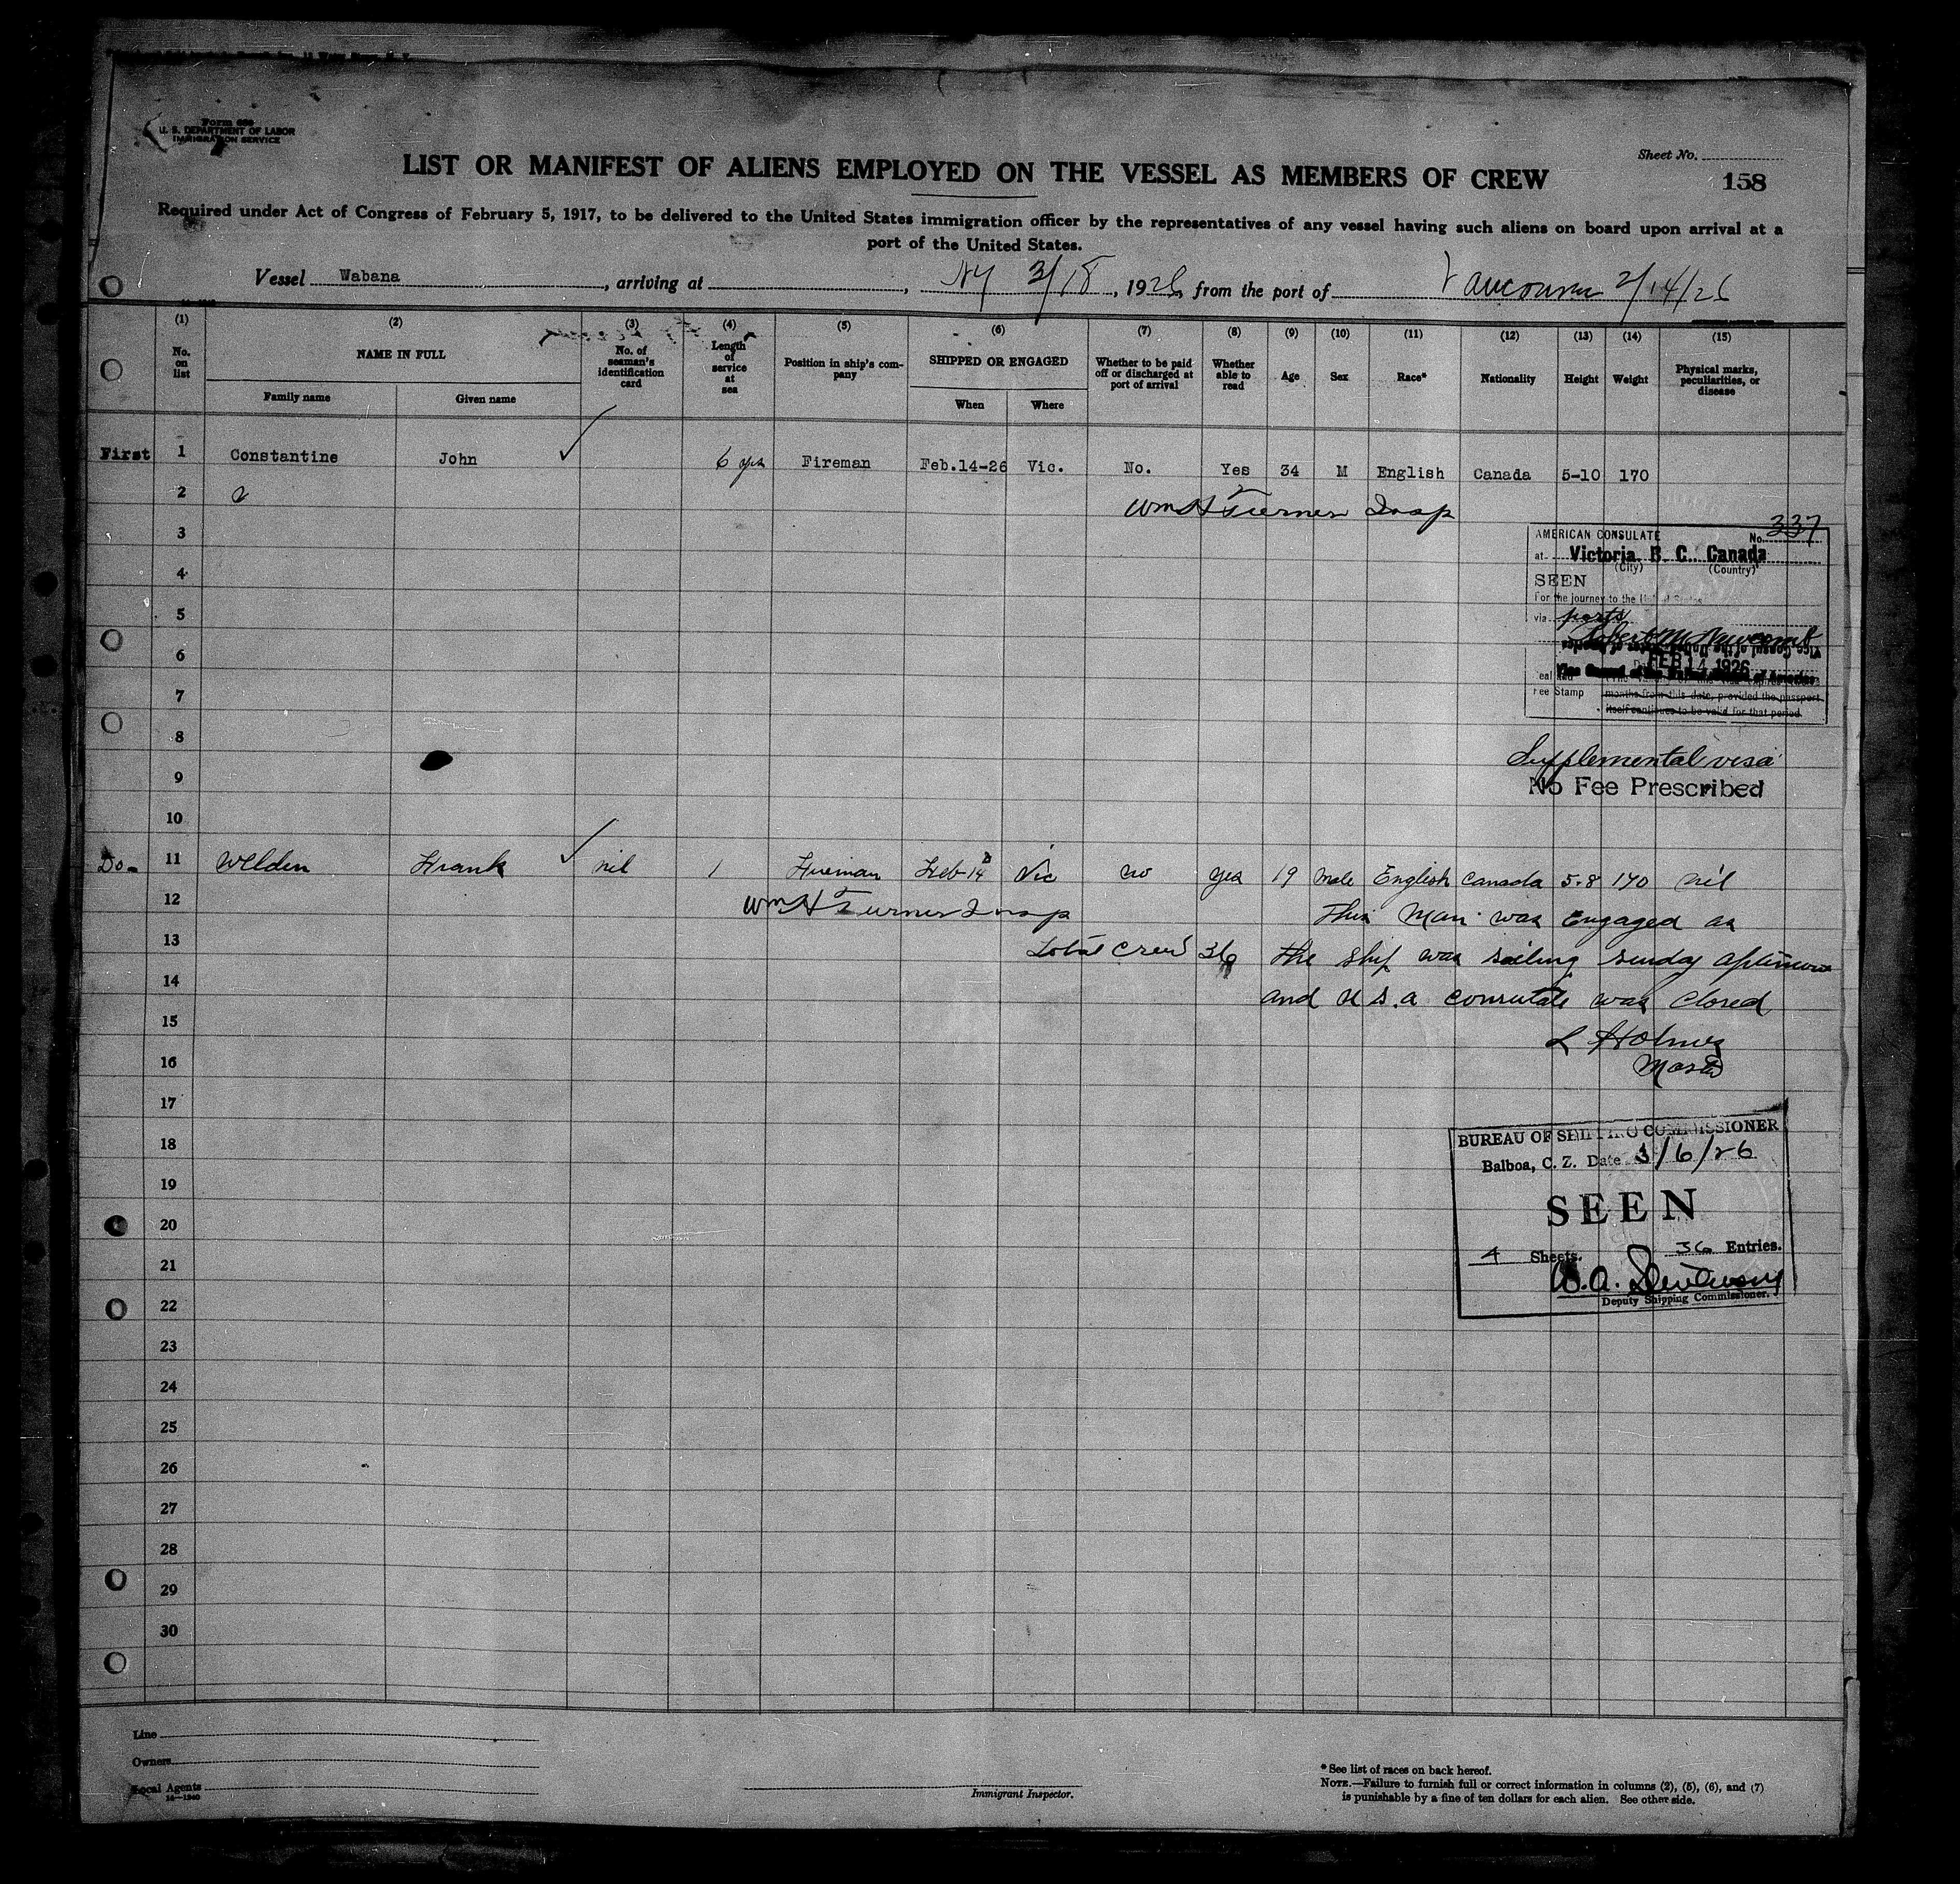 Form 680
U. S. DEPARTMENT OF LABOR
IMMIGRATION SERVICE
Sheet No.
LIST OR MANIFEST OF ALIENS EMPLOYED ON THE VESSEL AS MEMBERS OF CREW
158
Required under Act of Congress of February 5, 1917, to be delivered to the United States immigration officer by the representatives of any vessel having such aliens on board upon arrival at a
port of the United States.
Vessel Wabana, arriving at , NY 3/18, 1926, from the port of Vancouver 2/14/26
(1) (2) (3) (4) (5) (6) (7) (8) (9) (10) (11) (12) (13) (14) (15)
No. on list
NAME IN FULL
Family name
Given name
No. of seaman's identification card
Length of service at sea
Position in ship's company
SHIPPED OR ENGAGED
When
Where
Whether to be paid off or discharged at port of arrival
Whether able to read
Age
Sex
Race*
Nationality
Height
Weight
Physical marks, peculiarities, or disease
First 1 Constantine John 6 yrs Fireman Feb.14-26 Vic. No. Yes 34 M English Canada 5-10 170
2 Wm H Turner Insp
3
AMERICAN CONSULATE No. 337
at Victoria, B. C., Canada
(City) (Country)
4
SEEN
For the journey to the United States
5
via ports
Robert M Newcomb
6
FEB 14 1926
Vice Consul of the United States of America
7
Fee Stamp months from this date, provided the passport
itself continues to be valid for that period.
8
Supplemental visa
9
No Fee Prescribed
10
Do- 11 Welden Frank nil 1 Fireman Feb-14 Vic no yes 19 male English Canada 5-8 140 nil
12 Wm H Turner Insp This Man was Engaged as
13 Total Crew 36 the ship was sailing Sunday afternoon
14 and U S. a consulate was closed
15
L Holmes
16 Master
17
18
BUREAU OF SHIPPING COMMISSIONER
Balboa, C. Z. Date 3/6/26
19
SEEN
20
21
4 Sheets. 36 Entries.
W. A.
22
Deputy Shipping Commissioner.
23
24
25
26
27
28
29
30
Line
Owners
Local Agents
14—1240
Immigrant Inspector.
* See list of races on back hereof.
NOTE.—Failure to furnish full or correct information in columns (2), (5), (6), and (7)
is punishable by a fine of ten dollars for each alien. See other side.